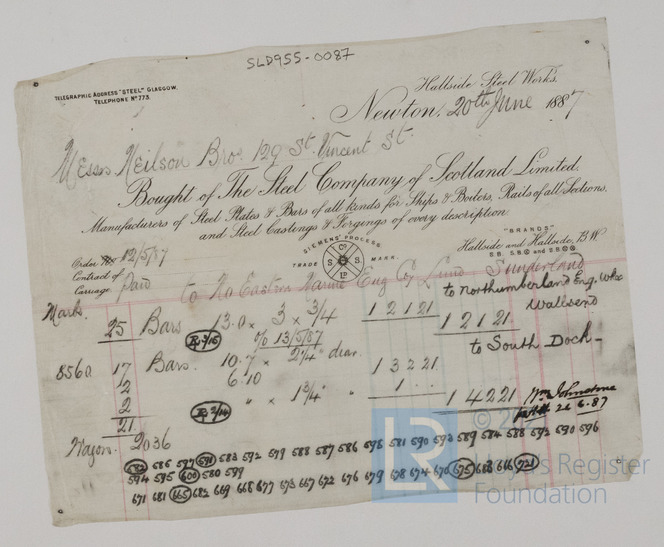 SLD955-0087
TELEGRAPHIC ADDRESS "STEEL" GLASGOW.
TELEPHONE No 773.
Hallside Steel Works.
Newton, 20th June 1887
Messrs Neilson Bros. 129 St. Vincent St.
Bought of The Steel Company of Scotland Limited.
Manufacturers of Steel Plates & Bars of all kinds for Ships & Boilers, Rails of all Sections,
and Steel Castings & Forgings of every description
SIEMENS' PROCESS
TRADE MARK.
S Co S LD
"BRANDS"
Hallside and Hallside, B.W.
Order 12/5/87
Contract of
Carriage. Paid
to No Eastern Marine Eng Co Limd Sunderland
to Northumberland Eng. Wks
Wallsend
Mark.
25 Bars 13.0 x 3 x 3/4 1 2 1 21 1 2 1 21
% 13/5/87
to South Dock-
8560 17 Bars. 10.7 x 2 1/4" diar. 1 3 2 21
2 6.10
2 " x 1 3/4 " 1 .. 1 4 2 21
21
Wm Johnstone
22.6.87
Wagon. 2036
586 597 591 583 592 579 588 587 586 596 581 590 593 589 584 588 592 590 596
594 595 600 580 599
671 681 665 682 669 668 677 673 667 672 676 679 678 674 670 675 668 666 721
©
LR
Lloyd's Register
Foundation